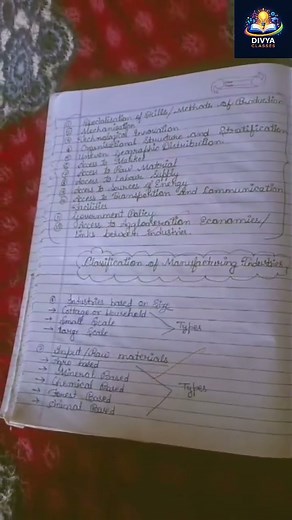 DIVYA
CLASSES
Specialisation of Skills/Methods of Production
Mechanisation
Technological Innovation
Organisational Structure and Stratification
Uneven Geographic Distribution
Access to Market
Access to Raw Material
Access to Labour Supply
Access to Sources of Energy
Access to Transpotation and Communication
Facilities
Government Policy
Access to Agglomeration Economies/
Links between Industries
Classification of Manufacturing Industries
Industries based on Size
→ Cottage or Household
→ Small Scale
→ Large Scale
Types
Input/Raw materials
→ Agro based
→ Mineral Based
→ Chemical Based
→ Forest Based
→ Animal Based
Types